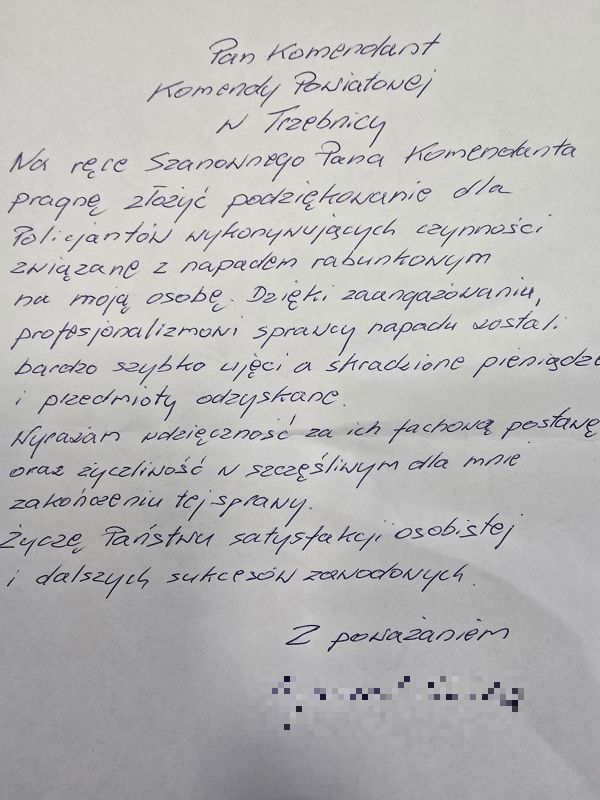 Pan Komendant
Komendy Powiatowej
w Trzebnicy
Na ręce Szanownego Pana Komendanta
pragnę złożyć podziękowanie dla
Policjantów wykonywujących czynności
związane z napadem rabunkowym
na moją osobę. Dzięki zaangażowaniu,
profesjonalizmowi sprawcy napadu zostali
bardzo szybko ujęci a skradzione pieniądze
i przedmioty odzyskane.
Wyrażam wdzięczność za ich fachową postawę
oraz życzliwość w szczęśliwym dla mnie
zakończeniu tej sprawy.
Życzę Państwu satysfakcji osobistej
i dalszych sukcesów zawodowych.
Z poważaniem